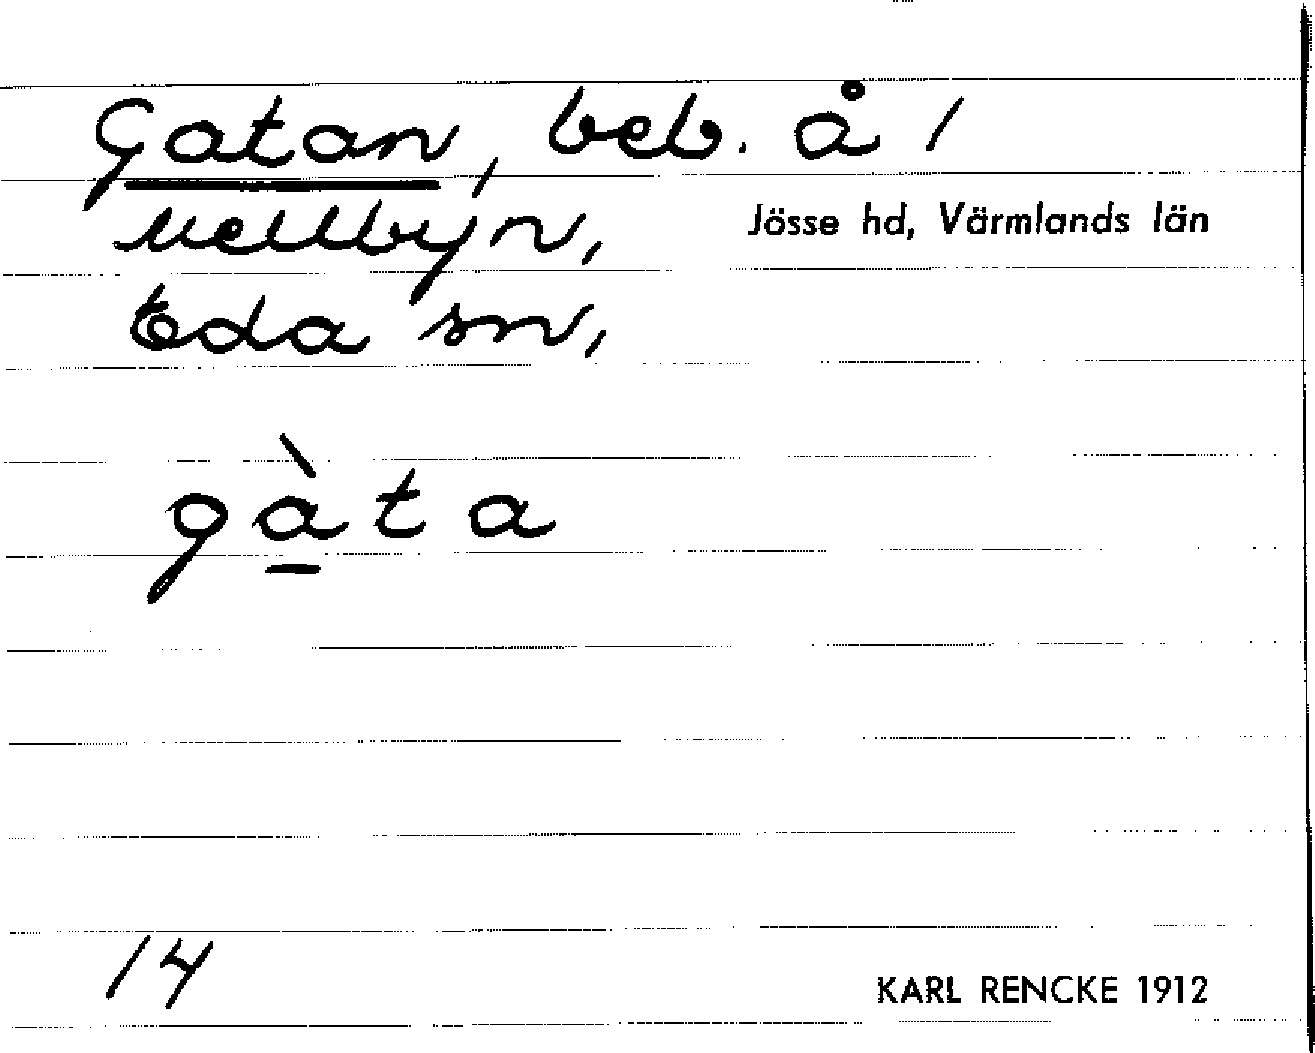 Gatan, beb. å 1
Mellbyn,
Jösse hd, Värmlands län
Eda sn,
g à t a
14
KARL RENCKE 1912